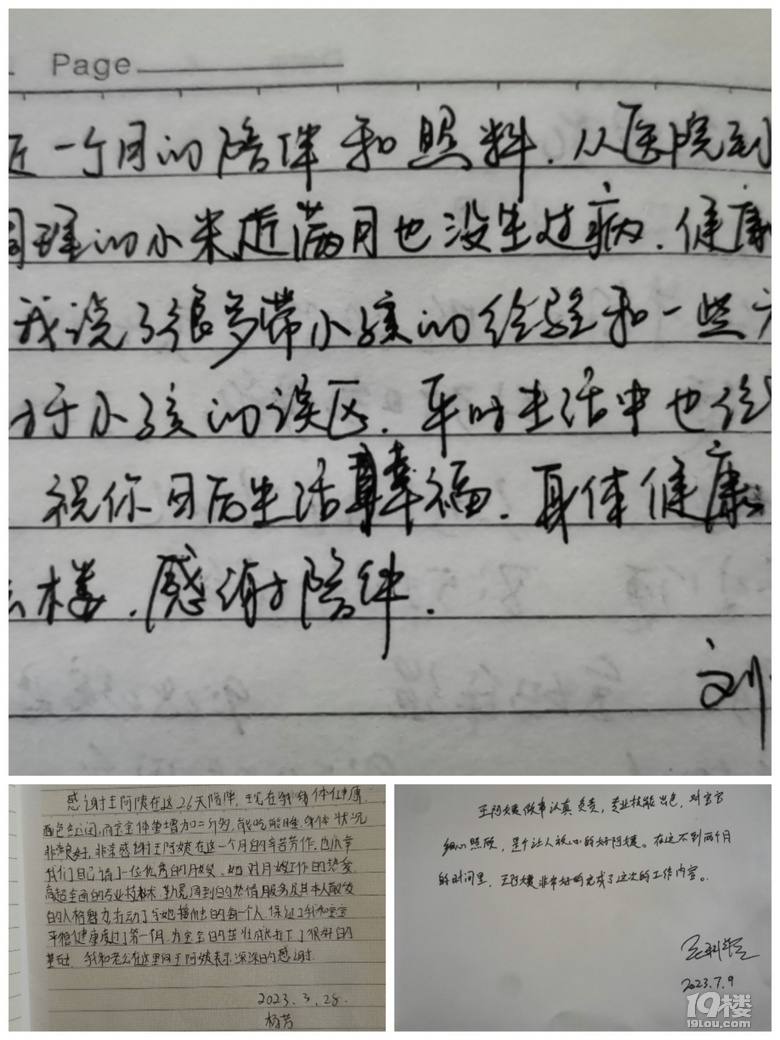 Page
近一个月的陪伴和照料.从医院到
调理的小米近满月也没生过病.健康
我说了很多带小孩的经验和一些
对于小孩的误区.平时生活中也给
祝你日后生活幸福.身体健康
楼.感谢陪伴.
刘
感谢王阿姨在这26天陪伴,现在我身体健康,
面色红润,而宝宝体重增加二斤多,能吃能睡,身体状况
非常良好,非常感谢王阿姨在这一个月的辛苦劳作,也庆幸
我们自己请了一位优秀的月嫂,她对月嫂工作的热爱,
高超全面的专业技术,勤恳周到的热情服务及其本人散发
的人格魅力,打动了与她接触的每一个人,保证了我和宝宝
平稳健康度过了第一个月,为宝宝的茁壮成长打下了很好的
基础,我和老公在这里向王阿姨表示深深的感谢.
2023.3.28.
杨芳
王阿姨做事认真负责,专业技能出色,对宝宝
细心照顾,是个让人放心的好阿姨。在这不到两个月
的时间里,王阿姨非常好的完成了这次的工作内容。
2023.7.9
19楼
19lou.com